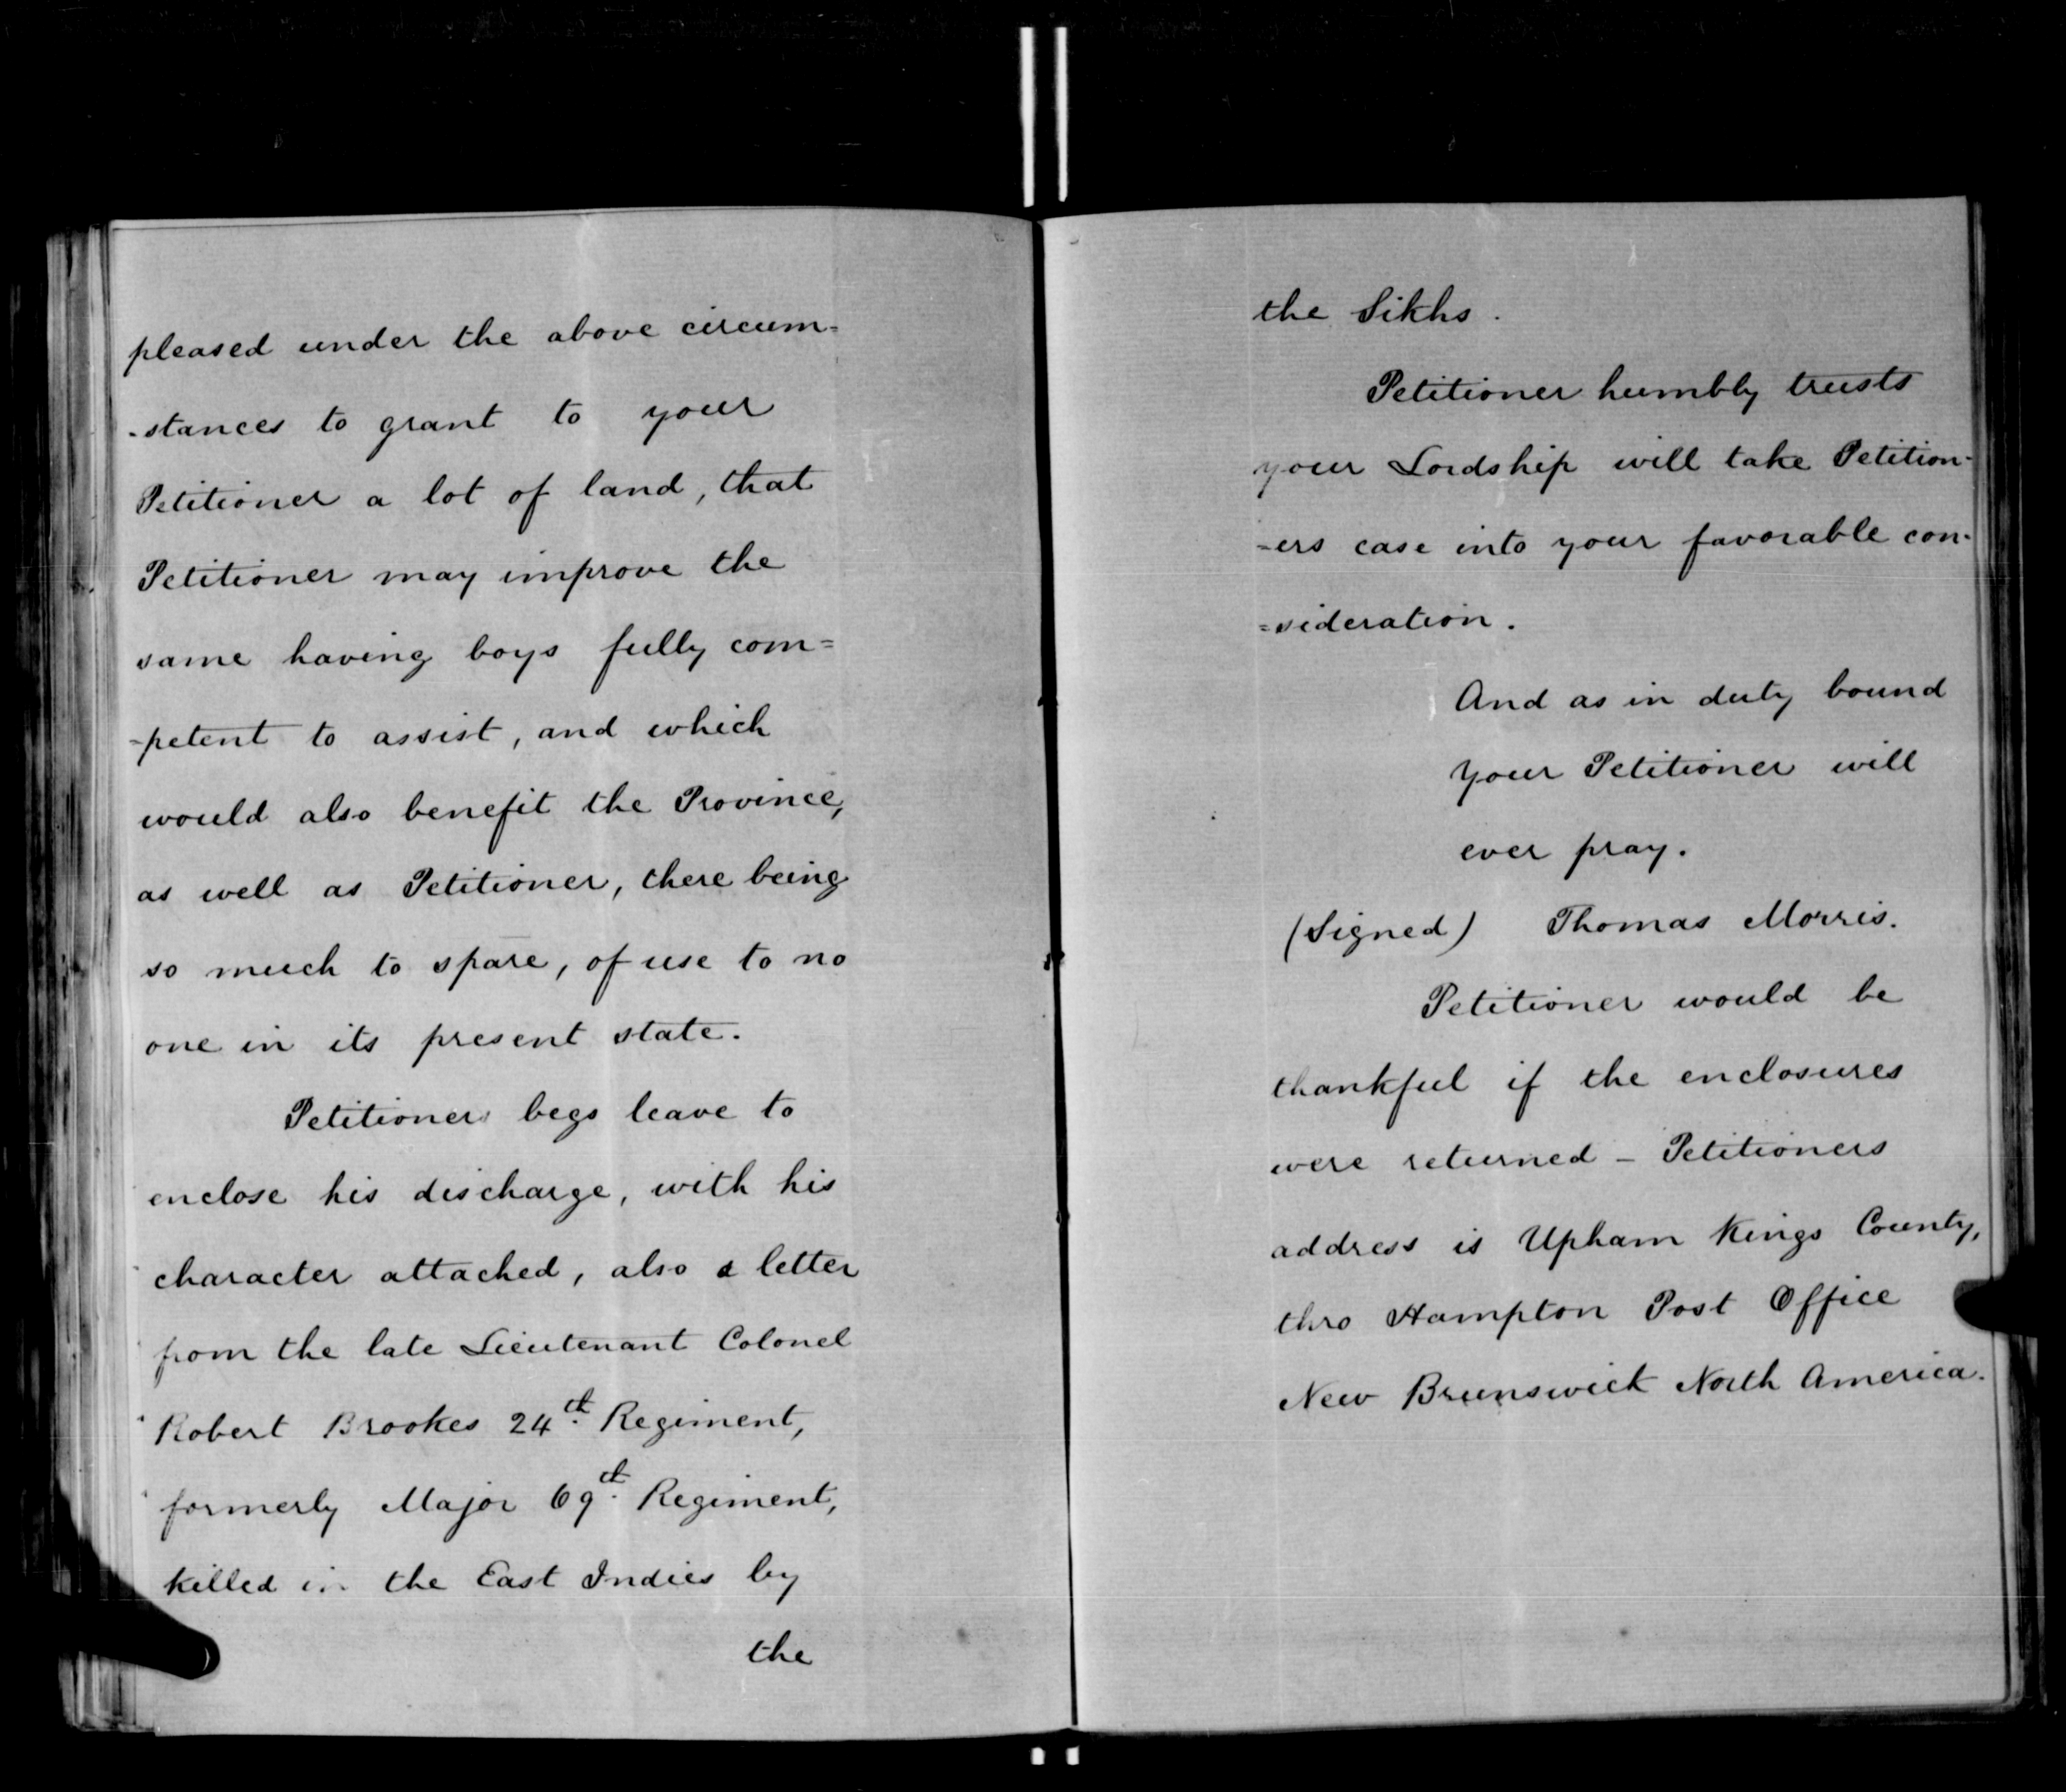 pleased under the above circum=
-stances to grant to your
Petitioner a lot of land, that
Petitioner may improve the
same having boys fully com=
-petent to assist, and which
would also benefit the Province,
as well as Petitioner, there being
so much to spare, of use to no
one in its present state.
Petitioner begs leave to
enclose his discharge, with his
character attached, also a letter
from the late Lieutenant Colonel
Robert Brookes 24th. Regiment,
formerly Major 69th. Regiment,
killed in the East Indies by
the
the Sikhs.
Petitioner humbly trusts
your Lordship will take Petition-
-ers case into your favorable con-
=sideration.
And as in duty bound
your Petitioner will
ever pray.
(Signed) Thomas Morris.
Petitioner would be
thankful if the enclosures
were returned - Petitioners
address is Upham Kings County,
thro Hampton Post Office
New Brunswick North America.